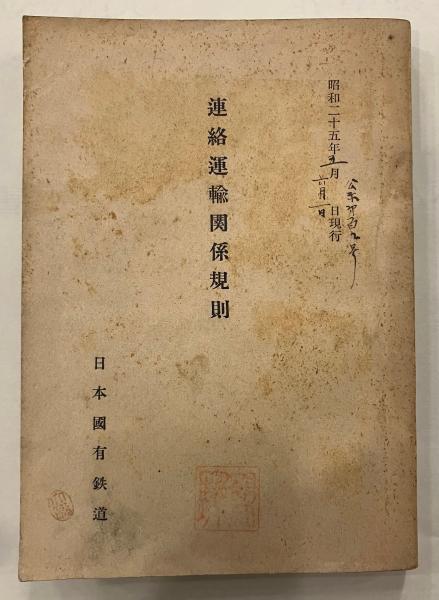 昭和二十五年五月 日現行
六月一日
連絡運輸関係規則
日本國有鉄道